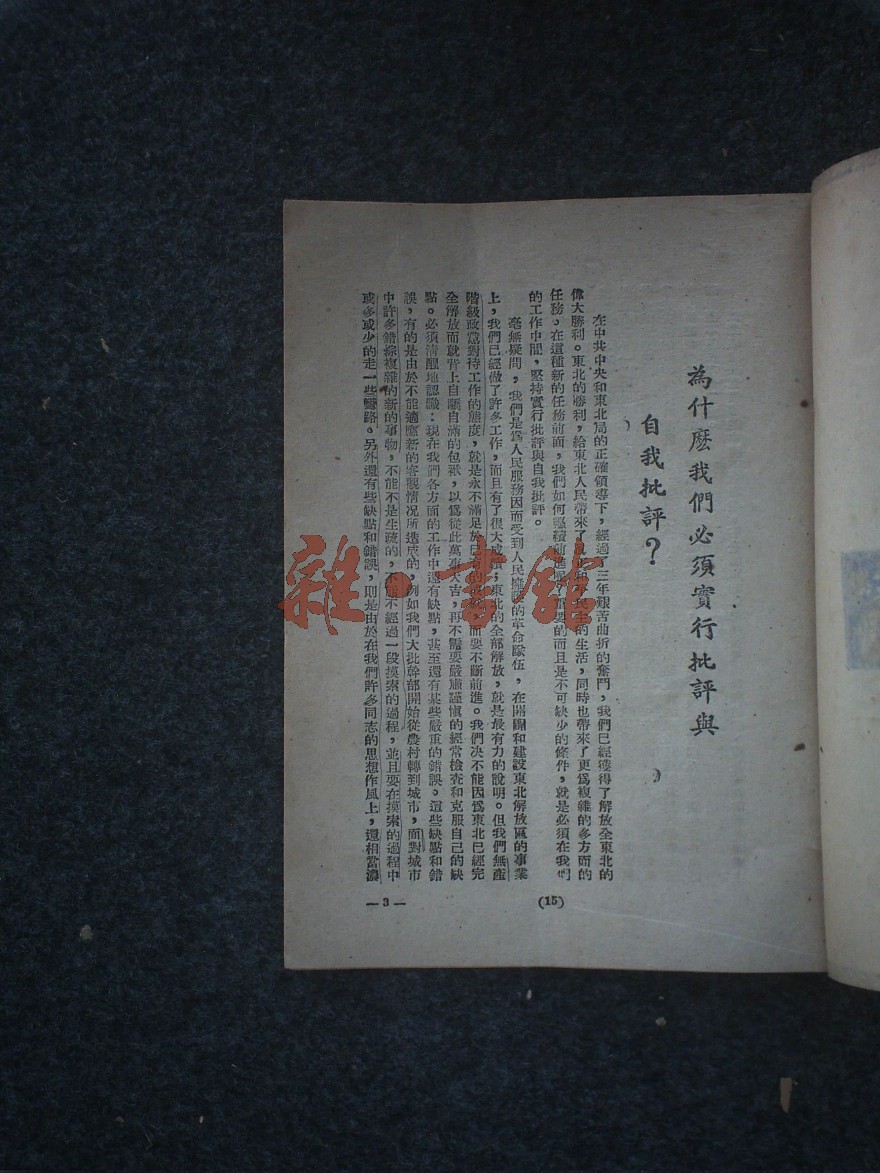 為什麽我們必須實行批評與
自我批評？
在中共中央和東北局的正確領導下，經過了三年艱苦曲折的奮鬥，我們已經獲得了解放全東北的
偉大勝利。東北的勝利，給東北人民帶來了和平和民主的生活，同時也帶來了更爲複雜的多方面的
任務。在這種新的任務前面，我們如何繼續前進呢？重要的而且是不可缺少的條件，就是必須在我們
的工作中間，堅持實行批評與自我批評。
毫無疑問，我們是爲人民服務因而受到人民擁護的革命隊伍，在開闢和建設東北解放區的事業
上，我們已經做了許多工作，而且有了很大成績；東北的全部解放，就是最有力的說明。但我們無產
階級政黨對待工作的態度，就是永不滿足於已有的成績，而要不斷前進。我們決不能因爲東北已經完
全解放而就背上自驕自滿的包袱，以爲從此萬事大吉，再不需要嚴肅謹慎的經常檢查和克服自己的缺
點。必須清醒地認識：現在我們各方面的工作中還有缺點，甚至還有某些嚴重的錯誤。這些缺點和錯
誤，有的是由於不能適應新的客觀情况所造成的，例如我們大批幹部開始從農村轉到城市，面對城市
中許多錯綜複雜的新的事物，不能不是生疏的，不能不經過一段摸索的過程，並且要在摸索的過程中
或多或少的走一些彎路。另外還有些缺點和錯誤，則是由於在我們許多同志的思想作風上，還相當濃
(15)
— 3 —
雜·書館